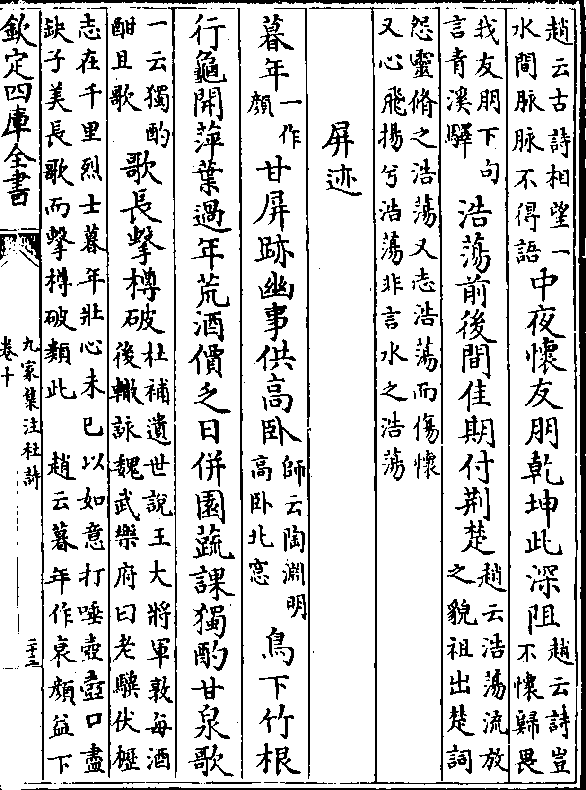 趙云古詩相望一
水間脉脉不得語
中夜懷友朋乾坤此深阻
趙云詩豈
不懷歸畏
我友朋下句
言青溪驛
浩蕩前後間佳期付荆楚
趙云浩蕩流放
之貌祖出楚詞
怨靈脩之浩蕩又志浩蕩而傷懷
又心飛揚兮浩蕩非言水之浩蕩
屏迹
暮年
一作
顔
甘屏跡幽事供高卧
師云陶淵明
高卧北窓
鳥下竹根
行龜開萍葉過年荒酒價乏日併園蔬課獨酌甘泉歌
一云獨酌
酣且歌
歌長擊樽破
杜補遺世說王大將軍敦每酒
後輙詠魏武樂府曰老驥伏櫪
志在千里烈士暮年壯心未已以如意打唾壺壺口盡
缺子美長歌而擊樽破類此　趙云暮年作衰顔益下
欽定四庫全書
九家集注杜詩
卷十
二十三